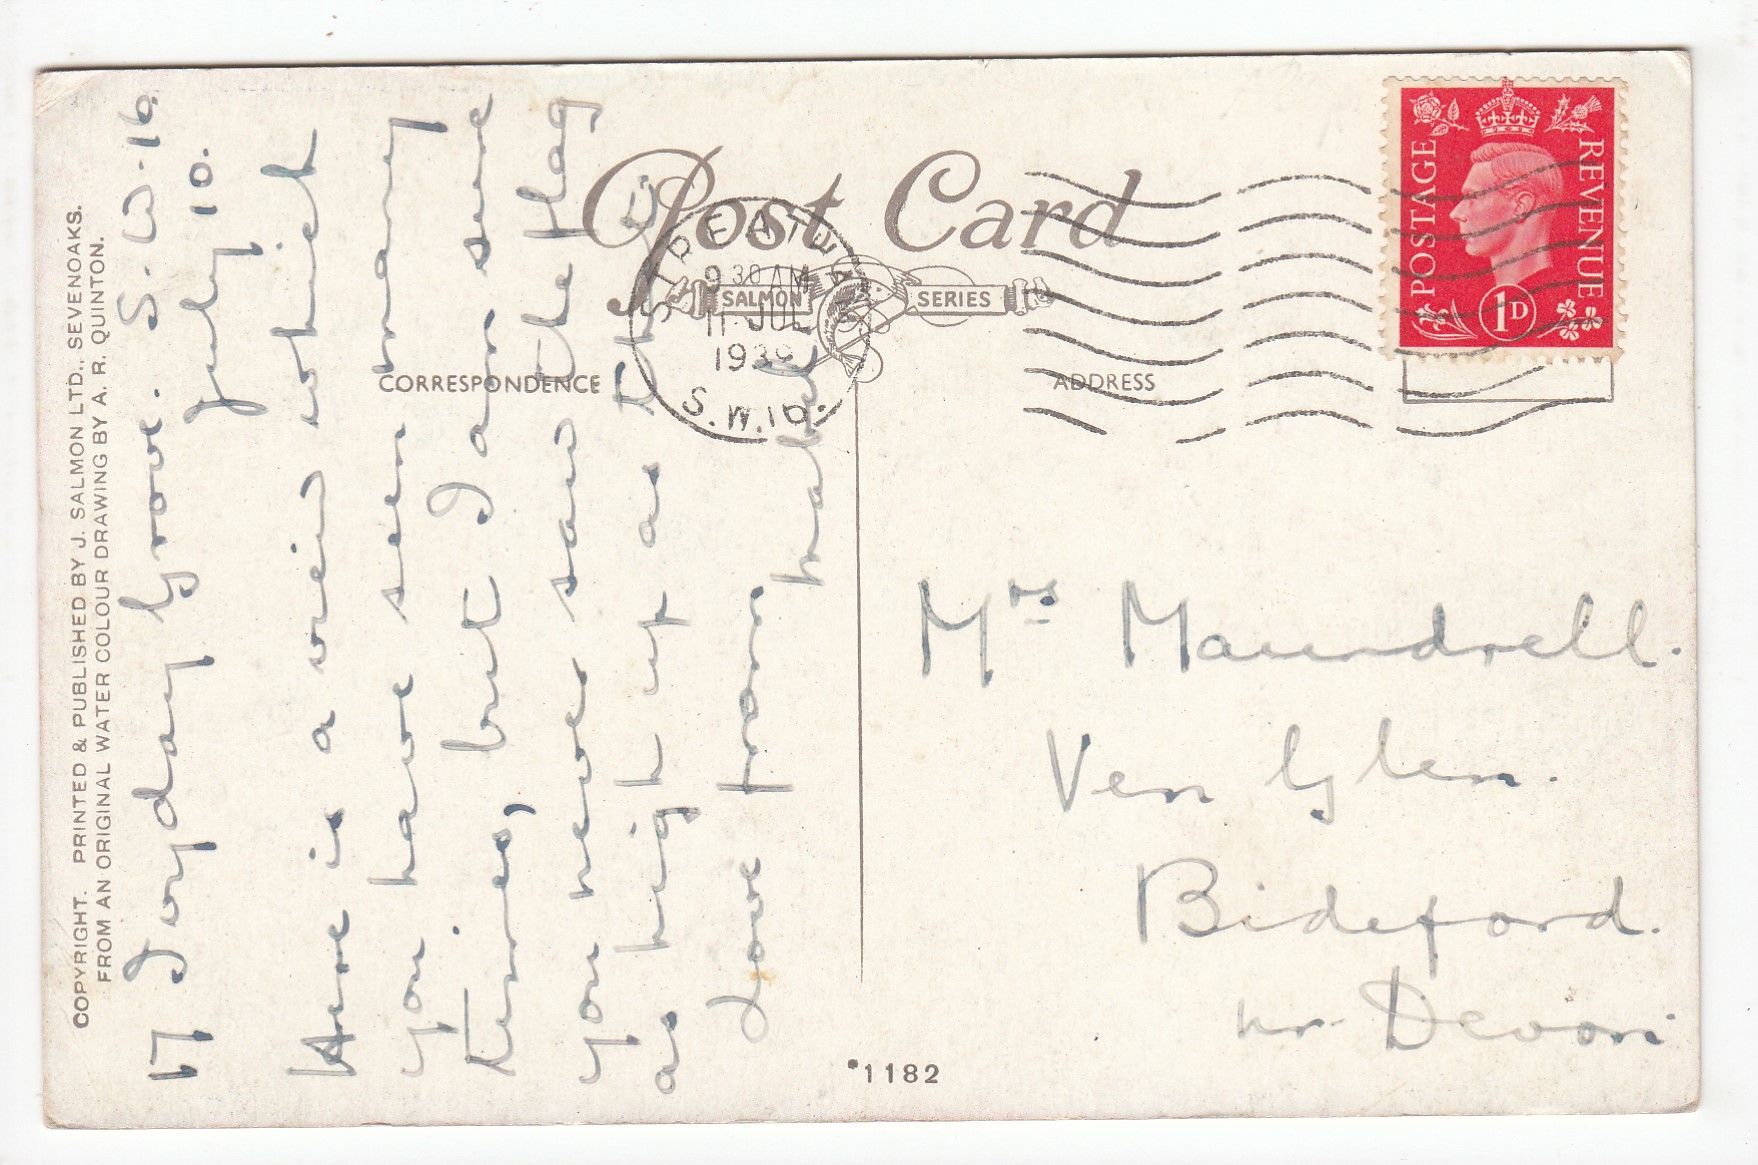 COPYRIGHT. PRINTED & PUBLISHED BY J. SALMON LTD., SEVENOAKS.
FROM AN ORIGINAL WATER COLOUR DRAWING BY A. R. QUINTON.
17 Jorday Grove. S.W.16.
July 10.
Here is a view which
you have seen many
times, but I am sure
you never saw the flag
as high up as this
Love from Mabel
Post Card
SALMON SERIES
CORRESPONDENCE
ADDRESS
STREATHAM
9 30 AM
11 JUL
1939
S.W.16.
POSTAGE REVENUE
1D
Mrs Maundrell.
Ven Glen.
Bideford.
nr. Devon
*1182